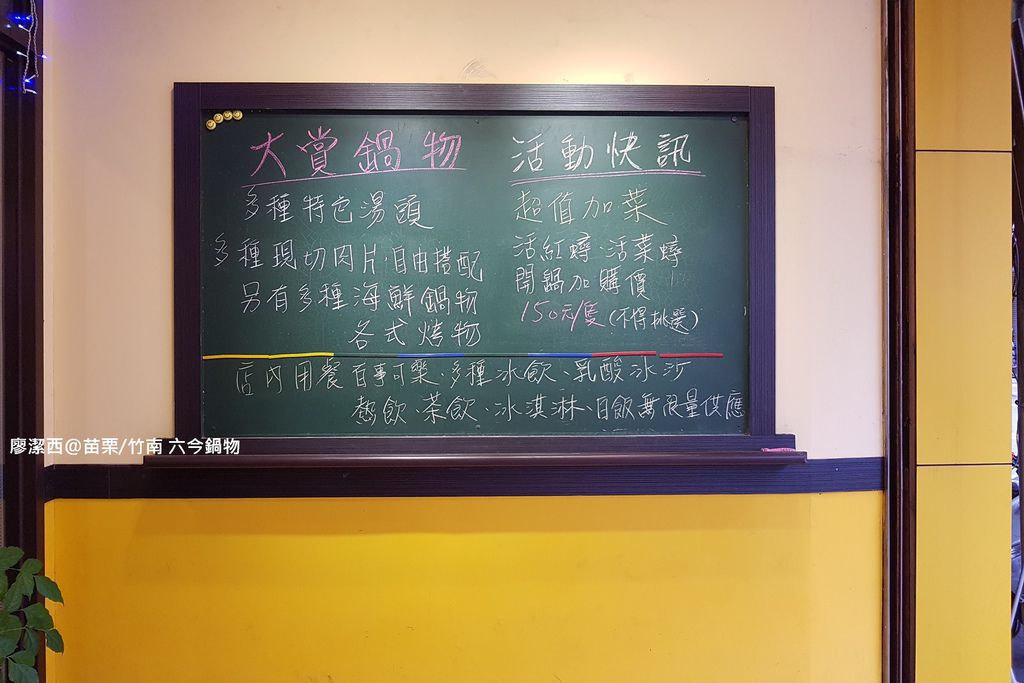 大賞鍋物
多種特色湯頭
多種現切肉片.自由搭配
另有多種海鮮鍋物
各式烤物
活動快訊
超值加菜
活紅蟳.活菜蟳
開鍋加購價
150元/隻(不得挑選)
店內用餐百事可樂.多種冰飲、乳酸冰沙
熱飲、茶飲、冰淇淋、白飯無限量供應
廖潔西@苗栗/竹南 六今鍋物